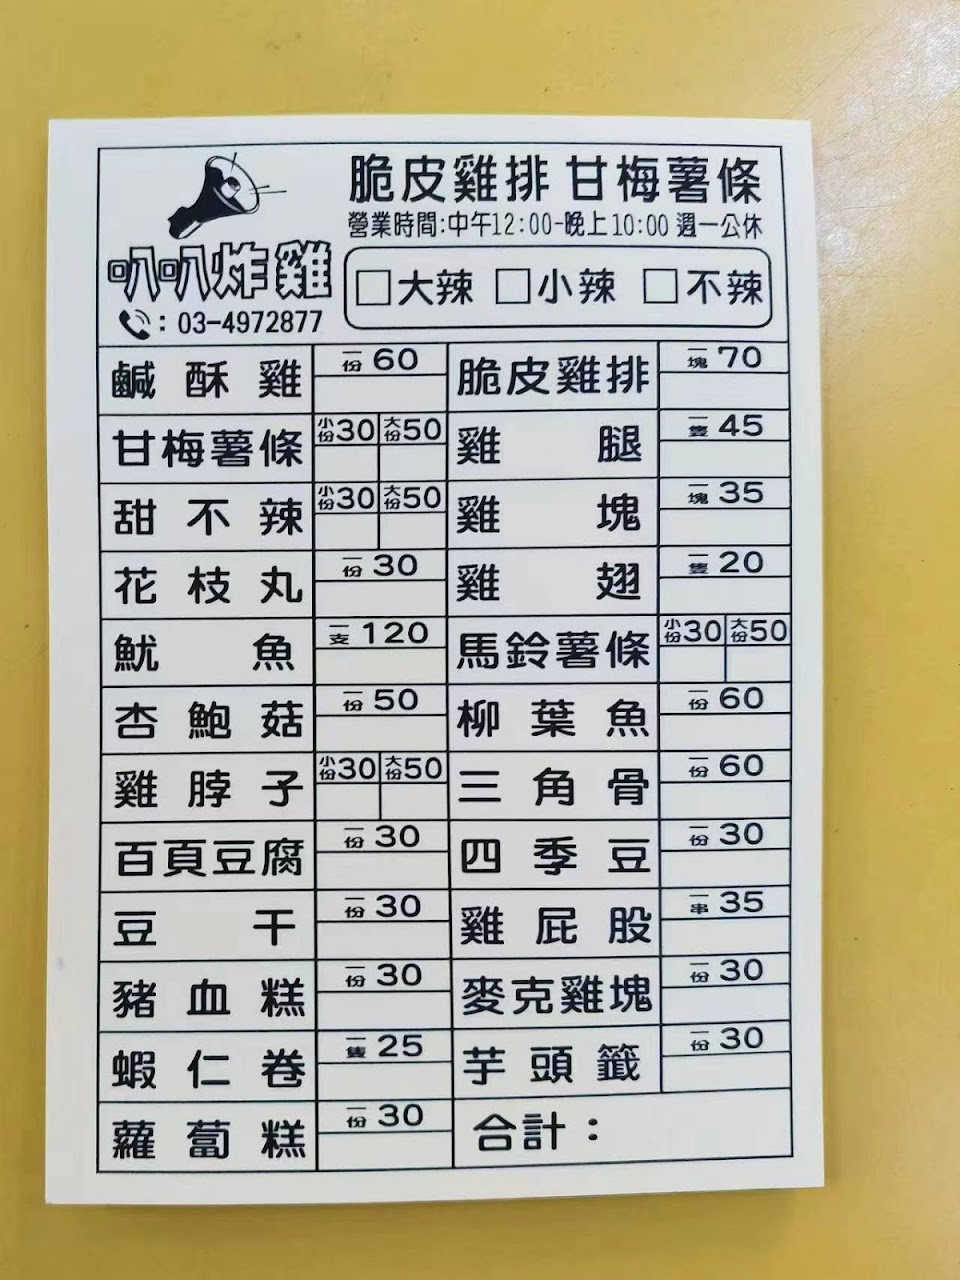 脆皮雞排 甘梅薯條
營業時間:中午12:00-晚上10:00 週一公休
叭叭炸雞
：03-4972877
□大辣 □小辣 □不辣
鹹酥雞 一份60
甘梅薯條 小份30 大份50
甜不辣 小份30 大份50
花枝丸 一份30
魷魚 一支120
杏鮑菇 一份50
雞脖子 小份30 大份50
百頁豆腐 一份30
豆干 一份30
豬血糕 一份30
蝦仁卷 一隻25
蘿蔔糕 一份30
脆皮雞排 一塊70
雞腿 一隻45
雞塊 一塊35
雞翅 一隻20
馬鈴薯條 小份30 大份50
柳葉魚 一份60
三角骨 一份60
四季豆 一份30
雞屁股 一串35
麥克雞塊 一份30
芋頭籤 一份30
合計：